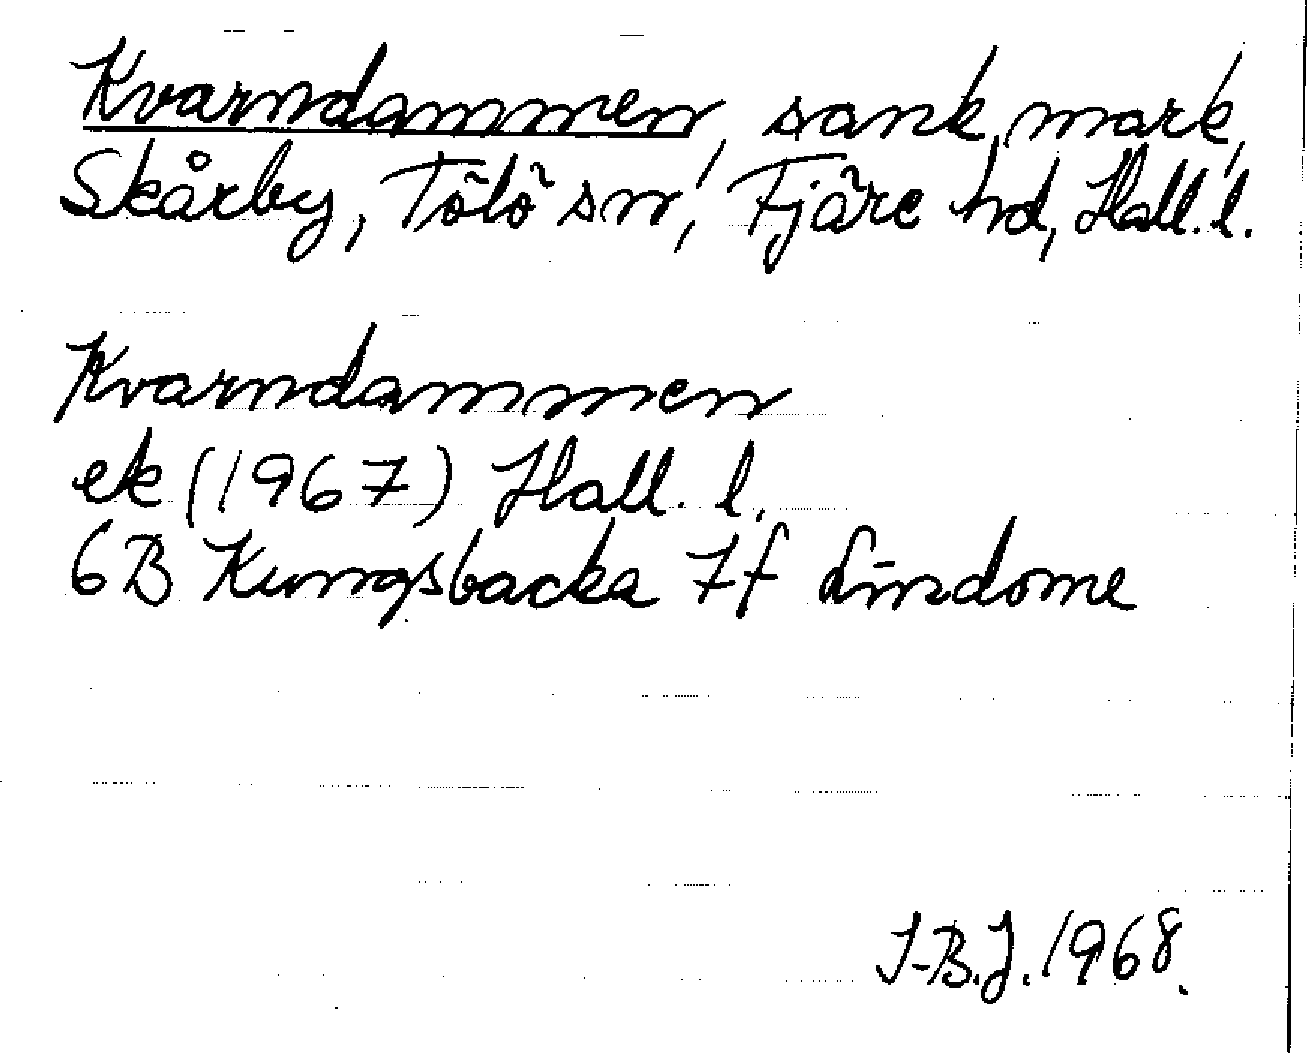 Kvarndammen, sank mark,
Skårby, Tölö sn, Fjäre hd, Hall. l.
Kvarndammen
ek (1967) Hall. l.
6B Kungsbacka 7f Lindome
I-B.J. 1968.